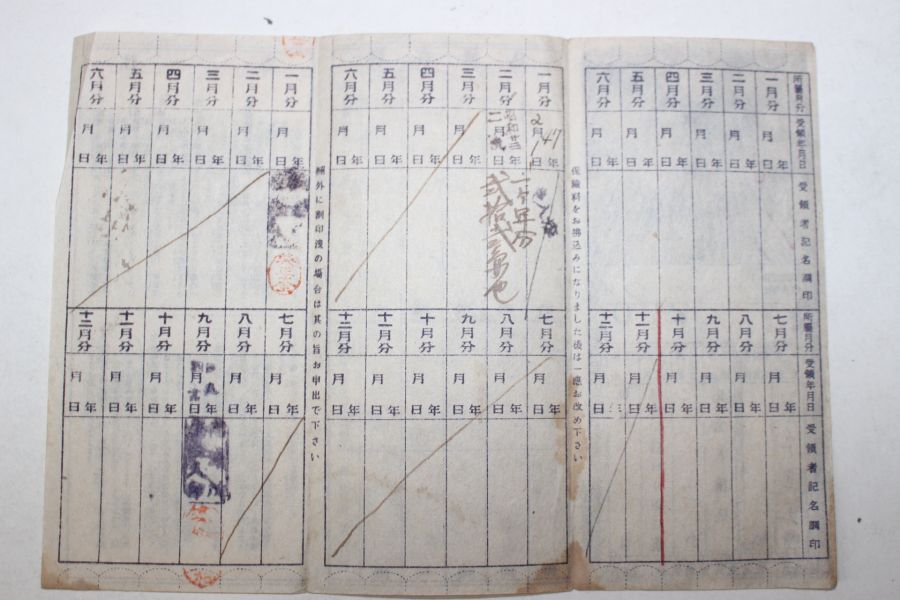 所屬月分 一月分 二月分 三月分 四月分 五月分 六月分
受領年月日 年月日 年月日 年月日 年月日 年月日 年月日
受領者記名調印
所屬月分 七月分 八月分 九月分 十月分 十一月分 十二月分
受領年月日 年月日 年月日 年月日 年月日 年月日 年月日
受領者記名調印
保險料をお拂込みになりました後は一應お改め下さい
一月分 二月分 三月分 四月分 五月分 六月分
年月日 年月日 年月日 年月日 年月日 年月日
2 47
昭和廿三
二
一ヶ年分
七月分 八月分 九月分 十月分 十一月分 十二月分
年月日 年月日 年月日 年月日 年月日 年月日
欄外に割印淺の場合は其の旨お申出で下さい
一月分 二月分 三月分 四月分 五月分 六月分
年月日 年月日 年月日 年月日 年月日 年月日
七月分 八月分 九月分 十月分 十一月分 十二月分
年月日 年月日 年月日 年月日 年月日 年月日